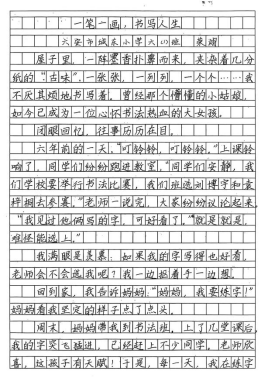 一笔一画，书写人生
六安市城东小学六(1)班
屋子里，一阵墨香扑鼻而来，夹杂着几分
纸的“古味”，一张张，一列列，一个个……我
不厌其烦地书写着，曾经那个懵懂的小姑娘，
如今已成为一位心怀书法热血的大女孩。
闭眼回忆，往事历历在目。
六年前的一天，“叮铃铃，叮铃铃。”上课铃
响了，同学们纷纷跑进教室。“同学们安静，我
们学校要举行书法比赛，我们班选刘博宇和袁
梓桐去参赛。”老师一说完，大家纷纷议论起来，
“我见过他俩写的字，可好看了。”“就是就是，
难怪能选上。”
我满眼是羡慕，如果我的字写得也好看，
老师会不会选我呢？我一边抠着手一边想。
回到家，我告诉妈妈：“妈妈，我要练字！”
妈妈看我坚定的样子点了点头。
周末，妈妈带我到书法班，上了几堂课后，
我的字突飞猛进，已经赶上不少同学。老师欣
喜，这孩子有天赋！于是，每一天，我在练字